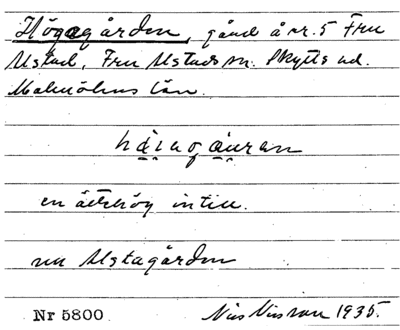 Högagården, gård å nr. 5 Fru
Alstad, Fru Alstads sn. Skytts hd.
Malmöhus län.
en ättehög intill.
nu Alstagården
Nr 5800 Nils Nilsson 1935.